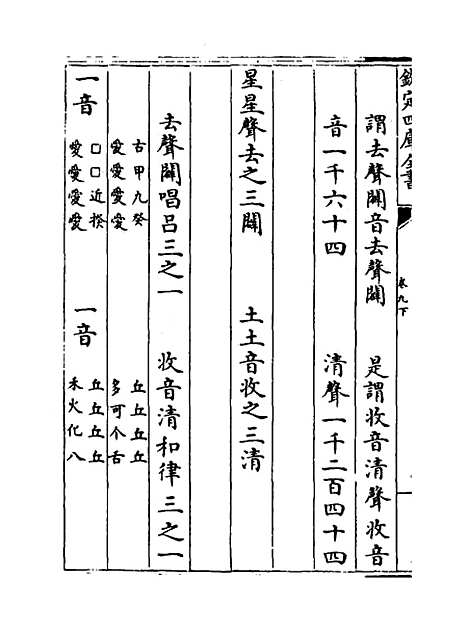 欽定四庫全書
卷九下
謂去聲闢音去聲闢　是謂收音清聲收音
音一千六十四　清聲一千二百四十四
星星聲去之三闢　土土音收之三清
去聲闢唱呂三之一　收音清和律三之一
古甲九癸
愛愛愛愛
丘丘丘丘
多可个舌
一音
□□近揆
愛愛愛愛
一音
丘丘丘丘
禾火化八